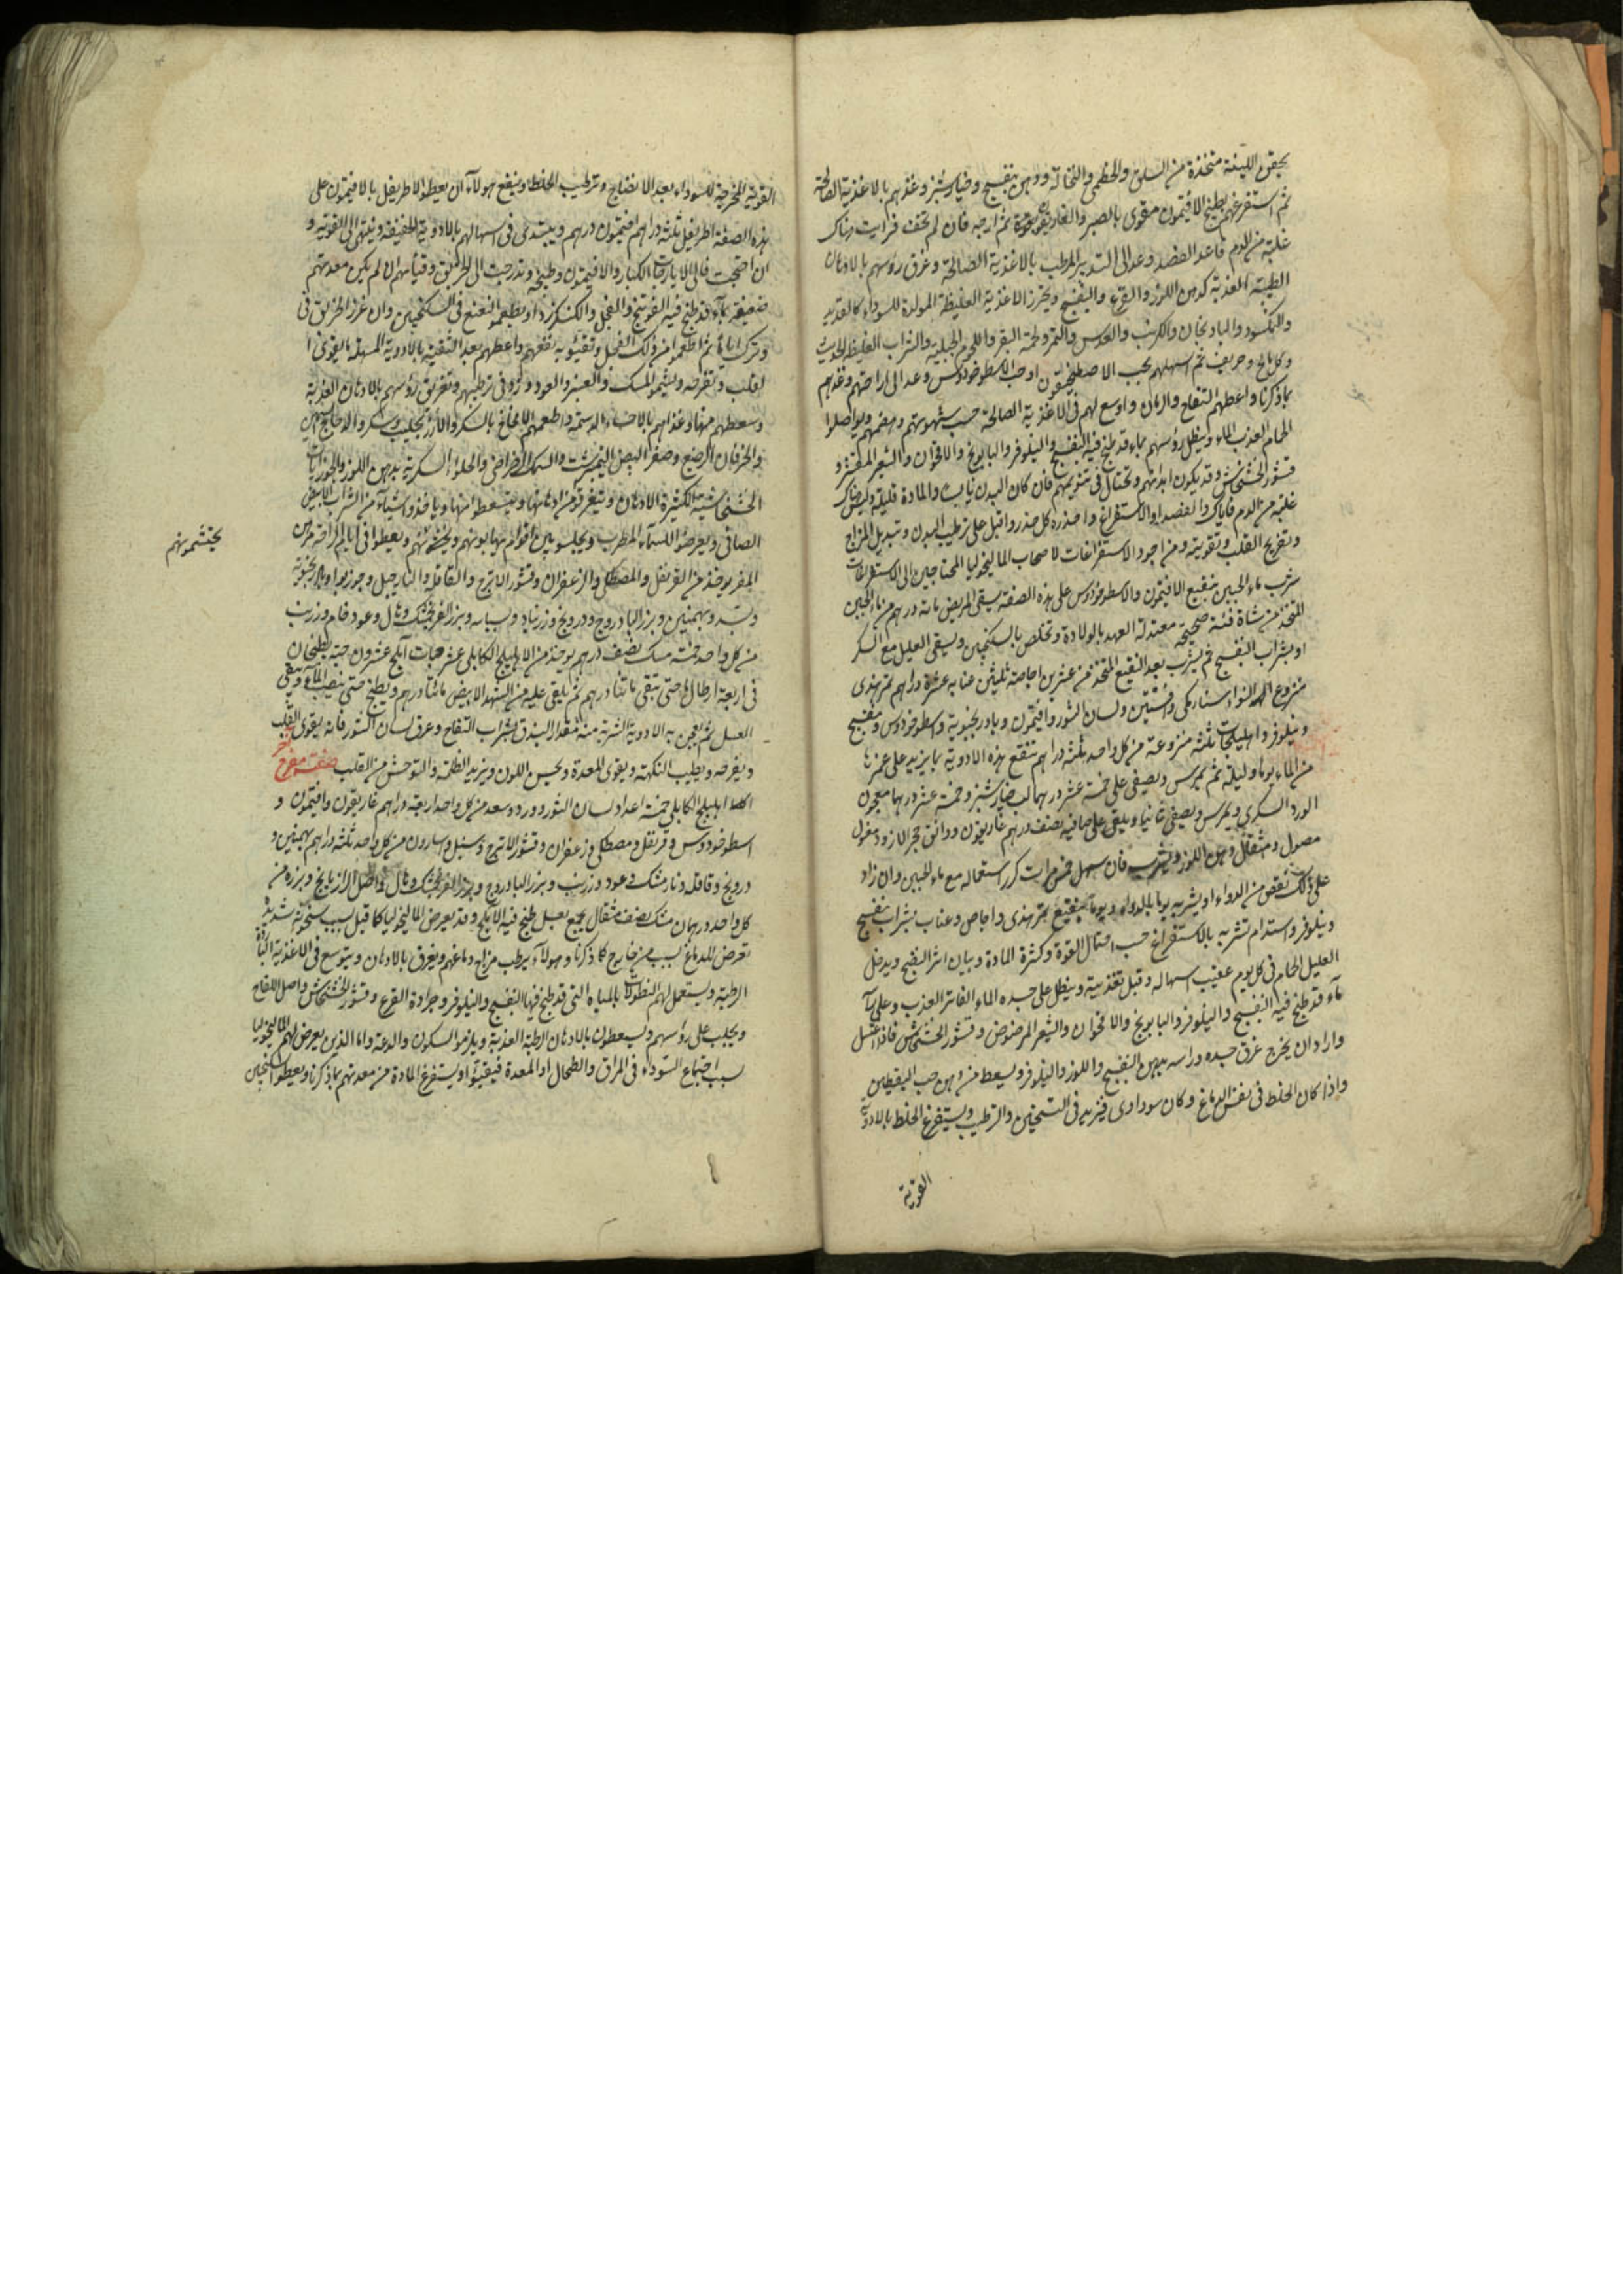 بحقن اللينة متخذة من السلق والخطمى والنخالة ودهن بنفسج وخيار شنبر وغذهم بالاغذية الصالحة
ثم استفرغهم بطبيخ الافيتمون مقوى بالصبر والغاريقون ثم ارجه فان لم تخف فرايت هناك
غلبة من الدم فاعد الفصد وعد الى التدبير المرطب بالاغذية الصالحة وغرق رؤسهم بالادهان
الطيبة العذبة كدهن اللوز والقرع والبنفسج ويحذر الاغذية الغليظة المولدة للسوداء كالقديد
والنمكسود والباذنجان والكرنب والعدس والتمر ولحمة البقر واللحوم الجبلية والشراب الغليظ الحديث
وكل مالح وحريف ثم اسهلهم بحب الاصطمخيقون او حب الاسطوخودوس وعد الى اراحتهم وغذهم
بما ذكرنا واعطهم التفاح والرمان واوسع لهم فى الاغذية الصالحة حسب شهوتهم وهضمهم ويواصلوا
الحمام العذب الماء وينطل رؤسهم بماء قد طبخ فيه البنفسج والنيلوفر والبابونج والاقحوان والشعير المقشر و
قشور الخشخاش وقد يكون ابدانهم وتحتال فى تنويمهم فان كان البدن يابسا والمادة قليلة وليس هناك
غلبة من الدم فاياك والفصد او الاستفراغ واحذره كل حذر واقبل على ترطيب البدن وتبديل المزاج
وتفريح القلب وتقويته ومن اجود الاستفراغات لاصحاب الماليخوليا المحتاجين الى الاستفراغات
شرب ماء الجبن بنقيع الافيتمون والاسطوخودوس على هذه الصفة يسقى المريض مائة درهم من ماء الجبن
المتخذ من شاة فتية صحيحة معتدلة العهد بالولادة وتخلص بالسكنجبين ويسقى العليل مع السكر
او بشراب البنفسج ثم يشرب بعد النقيع المتخذ من عشرين اجاصة ثلثين عنابة عشرة دراهم تمر هندى
منزوع النوا سنا مكى وافسنتين ولسان الثور وافيتمون وبادرنجبوية واسطوخودوس وبنفسج
ونيلوفر واهليلجات ثلثة منزوعة من كل واحد ثلثة دراهم تنقع هذه الادوية بما يزيد على غمرها
من الماء يوما وليلة ثم يمرس ويصفى على خمسة عشر درهما لب خيار شنبر وخمسة عشر درهما معجون
الورد السكرى ويمرس ويصفى ثانيا ويلقى على صافيه نصف درهم غاريقون ودانق حجر اللازورد مغسول
مصول ومثقال دهن اللوز ويشرب فان سهل خمس مرات كرر استعماله مع ماء الجبن وان زاد
على ذلك نقص من الدواء او يشربه يوما بالدواء ويوما بنقيع تمر هندى واجاص وعناب بشراب بنفسج
ونيلوفر واستدام شربه بالاستفراغ حسب احتمال القوة وكثرة المادة وبيان اثر النضج ويدخل
العليل الحمام فى كل يوم عقيب اسهاله وقبل تغذيته وينطل على جسده الماء الفاتر العذب وعلى راسه
ماء قد طبخ فيه البنفسج والنيلوفر والبابونج والاقحوان والشعير المرضوض وقشور الخشخاش فاذا اغتسل
واراد ان يخرج غرق جسده وراسه بدهن البنفسج واللوز والنيلوفر ويسعط من دهن حب اليقطين
واذا كان الخلط فى نفس الدماغ وكان سوداوى فيزيد فى التسخين والترطيب ويستفرغ الخلط بالادوية
القوية
القوية المخرجة للسوداء بعد الانضاج وترطيب الخلط وينفع هولاء ان يعطوا الاطريفل بالافيتمون على
هذه الصفة اطريفل ثلثة دراهم افيتمون درهم ويبتدئ فى اسهالهم بالادوية الخفيفة وينتهى الى القوية و
ان احتجت فالى الايارجات الكبار والافيتمون وطبيخه وتدرجت الى الخربق وقيأهم ان لم يكن معدتهم
ضعيفة بماء قد طبخ فيه الفوتنج والفجل والكنكرزد او يطعموا النعنع فى السكنجبين وان غرز الخربق فى
وترك اياما ثم اطعموا من ذلك الفجل وتقيئوا به نفعهم واعطهم بعد التنقية بالادوية المسهلة ما يقوى ا
لقلب وتفرحه ويشموا المسك والعنبر والعود وزد فى ترطيبهم وتغريق رؤسهم بالادهان العذبة
وسعطهم منها وغذاهم بالاحساء الدسمة واطعمهم الادمغة بالسكر والارز بحليب وسكر والدجاج السمين
والخرفان الرضع وصفر البيض النيمبرشت والسمك الرضراضى والحلواء السكرية بدهن اللوز والجوزابات
الخشخاشية الكثيرة الادهان ويتغرقوا من ادهانها ويتسعطوا منها وياخذوا شيئا من الشراب الابيض
الصافى ويعرضوا للسماء المطرب ويجلسوا بين اقوام يهابونهم ويحتشمونهم ويعطوا فى ايام الراحة من
يحتشمونهم
المفرح يوخذ من القرنفل والمصطكى والزعفران وقشور الاترج والقاقلة والنارجيل وجوزبوا وبادرنجبوية
وبسد وبهمنين وبزر الباذروج ودرونج وزرنباد وبسباسة وبزر الفرنجمشك وهال وعود خام وزرنب
من كل واحد خمسة مسك نصف درهم يوخذ من الاهليلج الكابلى عشر حبات املج عشرون حبة يطبخان
فى اربعة ارطال ماء حتى تبقى مائتا درهم ثم يلقى عليه من الشهد الابيض مائتا درهم ويطبخ حتى ينضب الماء ويبقى
العسل ثم تعجن به الادوية الشربة منه مقدار البندق بشراب التفاح وعرق لسان الثور فانه يقوى القلب
ويفرحه ويطيب النكهة ويقوى المعدة ويحسن اللون ويزيد الظلمة والتوحش من القلب صفة مفرح
اهليلج الكابلى خمسة اعداد لسان الثور وورد وسعد من كل واحد اربعة دراهم غاريقون وافيتمون و
اسطوخودوس وقرنفل ومصطكى وزعفران وقشور الاترج وسنبل واسارون من كل واحد ثلثة دراهم بهمنين و
درونج وقاقلة ونارمشك وعود وزرنب وبزر الباذروج وبزر الفرنجمشك وهال واصل الرازيانج وبزره من
كل واحد درهمان مسك نصف مثقال يجمع بعسل طبخ فيه الاملج وقد يعرض الماليخوليا كما قيل بسبب سخونة شديدة
تعرض للدماغ لسبب من خارج كما ذكرنا وهولاء يرطب مزاج دماغهم ويغرق بالادهان ويتوسع فى الاغذية الباردة
الرطبة ويستعمل لهم النطولات بالمياه التى قد طبخ فيها البنفسج والنيلوفر وجرادة القرع وقشور الخشخاش واصل اللفاح
ويحلب على رؤسهم ويسعطون بالادهان الرطبة العذبة ويلزموا السكون والدعة واما الذين يعرض لهم الماليخوليا
بسبب اجتماع السوداء فى المراق والطحال او المعدة فيقيئوا ويستفرغ المادة من معدتهم بما ذكرنا ويعطوا السكنجبين